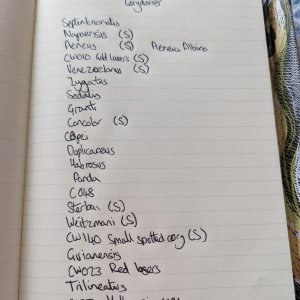 Corydoras
Septentrionalis
Napoensis (S)
Aeneus (S) Aeneus Albino
CW010 Gold lasers (S)
Venezeolanus (S)
Zygatus
Sodalis
Granti
Concolor (S)
Copei
Duplicareus
Habrosus
Panda
C048
Sterbai (S)
Weitzmani (S)
CW140 Small spotted cory (S)
Guianensis
CW023 Red lasers
Trilineatus